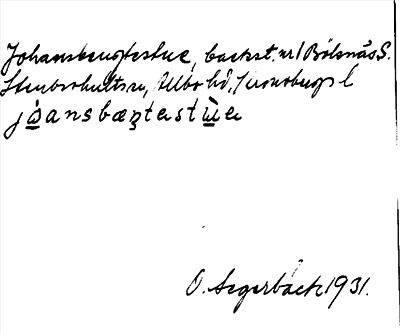 Johansbergstestue, backst. nr 1 Bölsnäs S.
Stenbrohults sn, Allbo hd, Kronobergs l
jo̱ansbæʒtestùe
O. Segerbäck 1931.